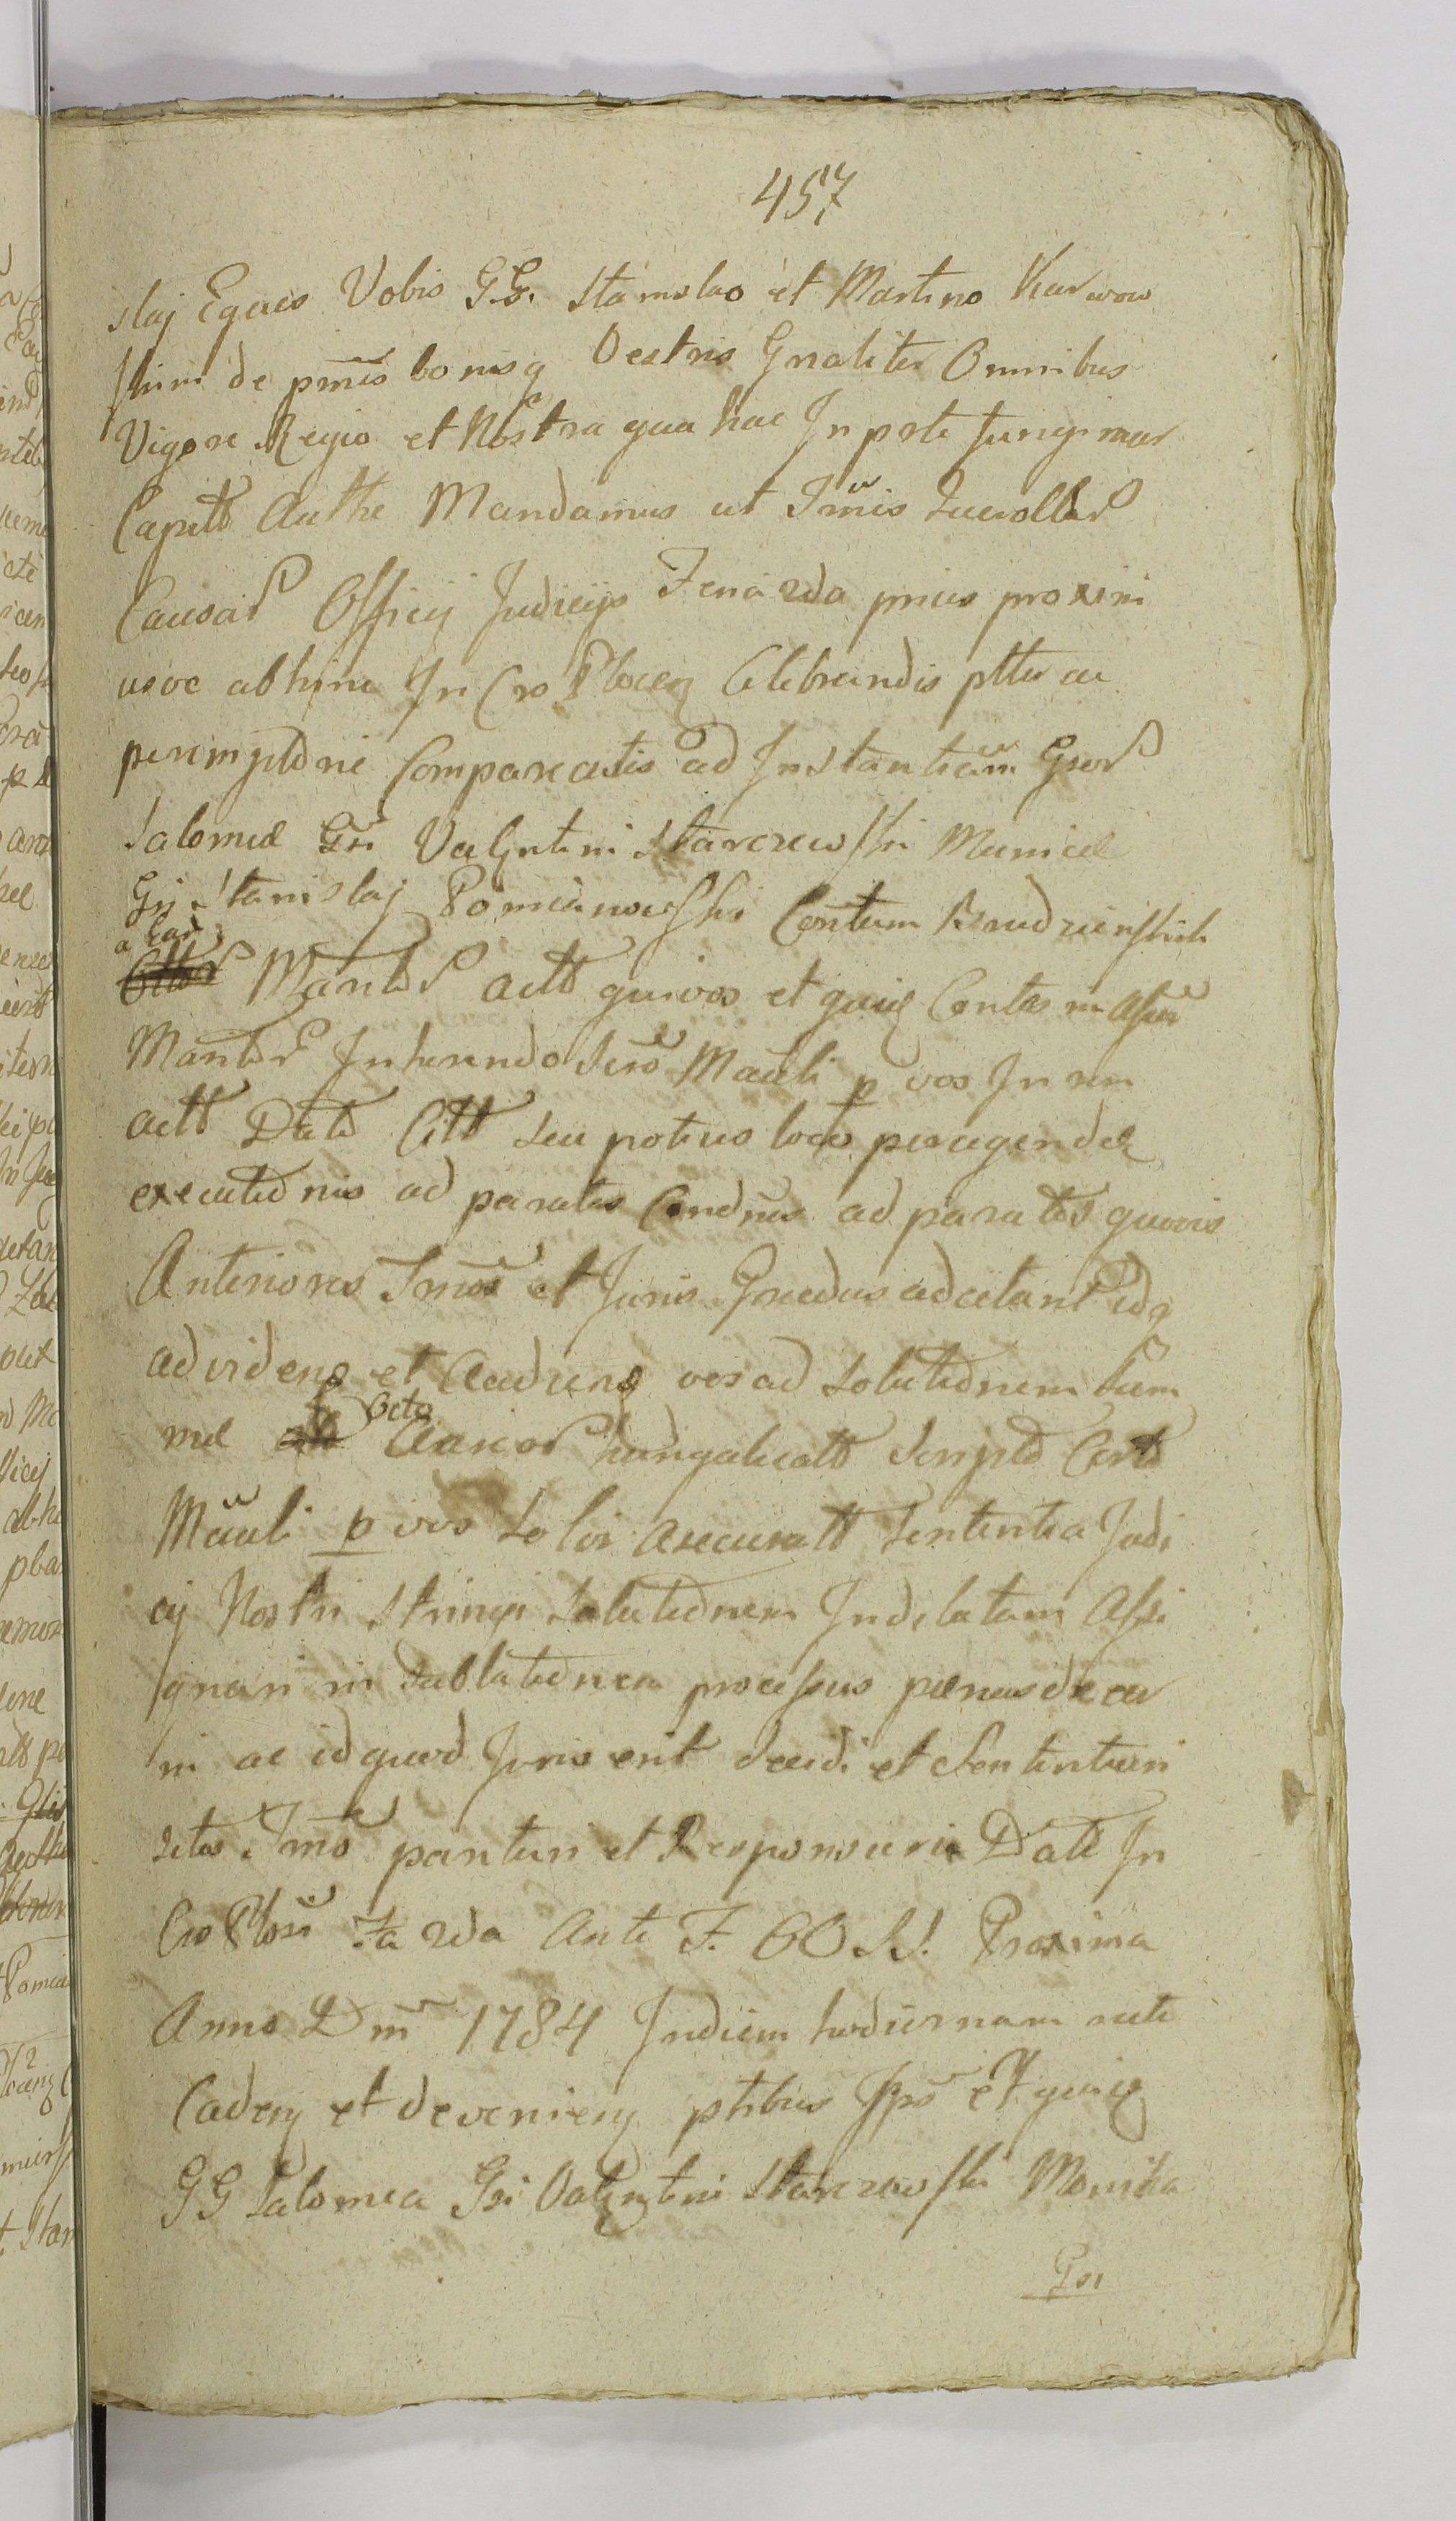 457
slaj Eques Vobis G.G. Stanislao et Martino Karwow
skim de pmis bonisq Vestris Gnaliter Omnibus
Vigore Regio et Nostra qua hac In prte fungimur
Captt Authe Mandamus ut Tmis
Causar Officij Judicijs Feria 2da prius proximi
usve abhinc In Cro Plocen Celebrandis ptter ac
peremptorie Compareatis ad Instantiam Gsor
Salomeæ Gsi Valentini Starczewski Monicæ
Gsi Stanislaj Pomianowski Contum Brudzinskich
a Cad
Mantor actt quivos et quiq Contes in assu
Mantor Inhærendo Scro Mauli p vos In rem
actt Datt Citt seu potius loco peragendæ
executionis ad paratas Condnes ad paratos quovis
Anteriores Tmos et Juris Gradus adcitant Idq
advidend et Audiend vos ad Solutionem Sum
mæ Octo Aureor hungalicatt Scripto Certo
Mauli p vos Solvi Asecuratt Sententia Judi
cij Nostri Stringi Solutionem Indilatam Assi
gnari in sublationem processus pænas decer
ni ac id quod Juris erit decidi et Sententiari
sitis Tmo parituri et Responsuri Datt In
Cro Plosci Fa 2da Ante F. OO SS. Proxima
Anno Dni 1784 Indiem hodiernam recte
Caden et devenien ptibus Ipsi et quiq
GG Salomea Gsi Valentini Starczewski Monika
Gsi